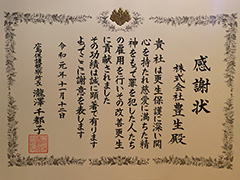 感謝状
株式会社豊生殿
貴社は更生保護に深い関
心を持たれ慈愛に満ちた精
神をもって罪を犯した人たち
の雇用を行いその改善更生
に貢献されました
その功績は誠に顕著で有ります
よってここに謝意を表します
令和元年十一月十二日
瀧澤千都子